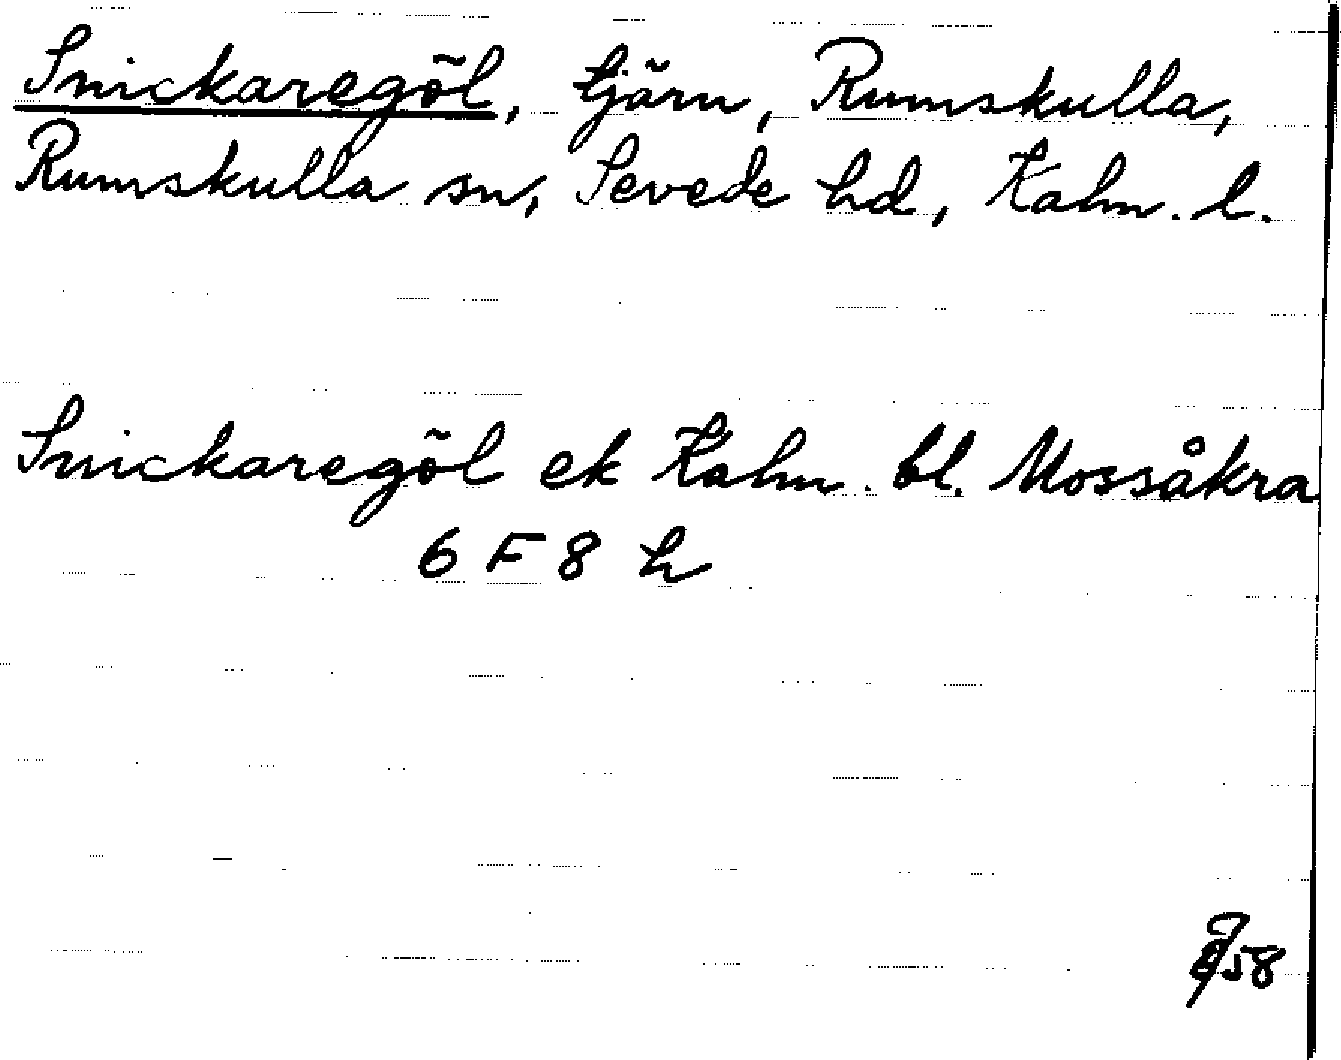 Snickaregöl, tjärn, Rumskulla,
Rumskulla sn, Sevede hd, Kalm. l.
Snickaregöl ek Kalm. bl. Mossåkra
6 F 8 h
58